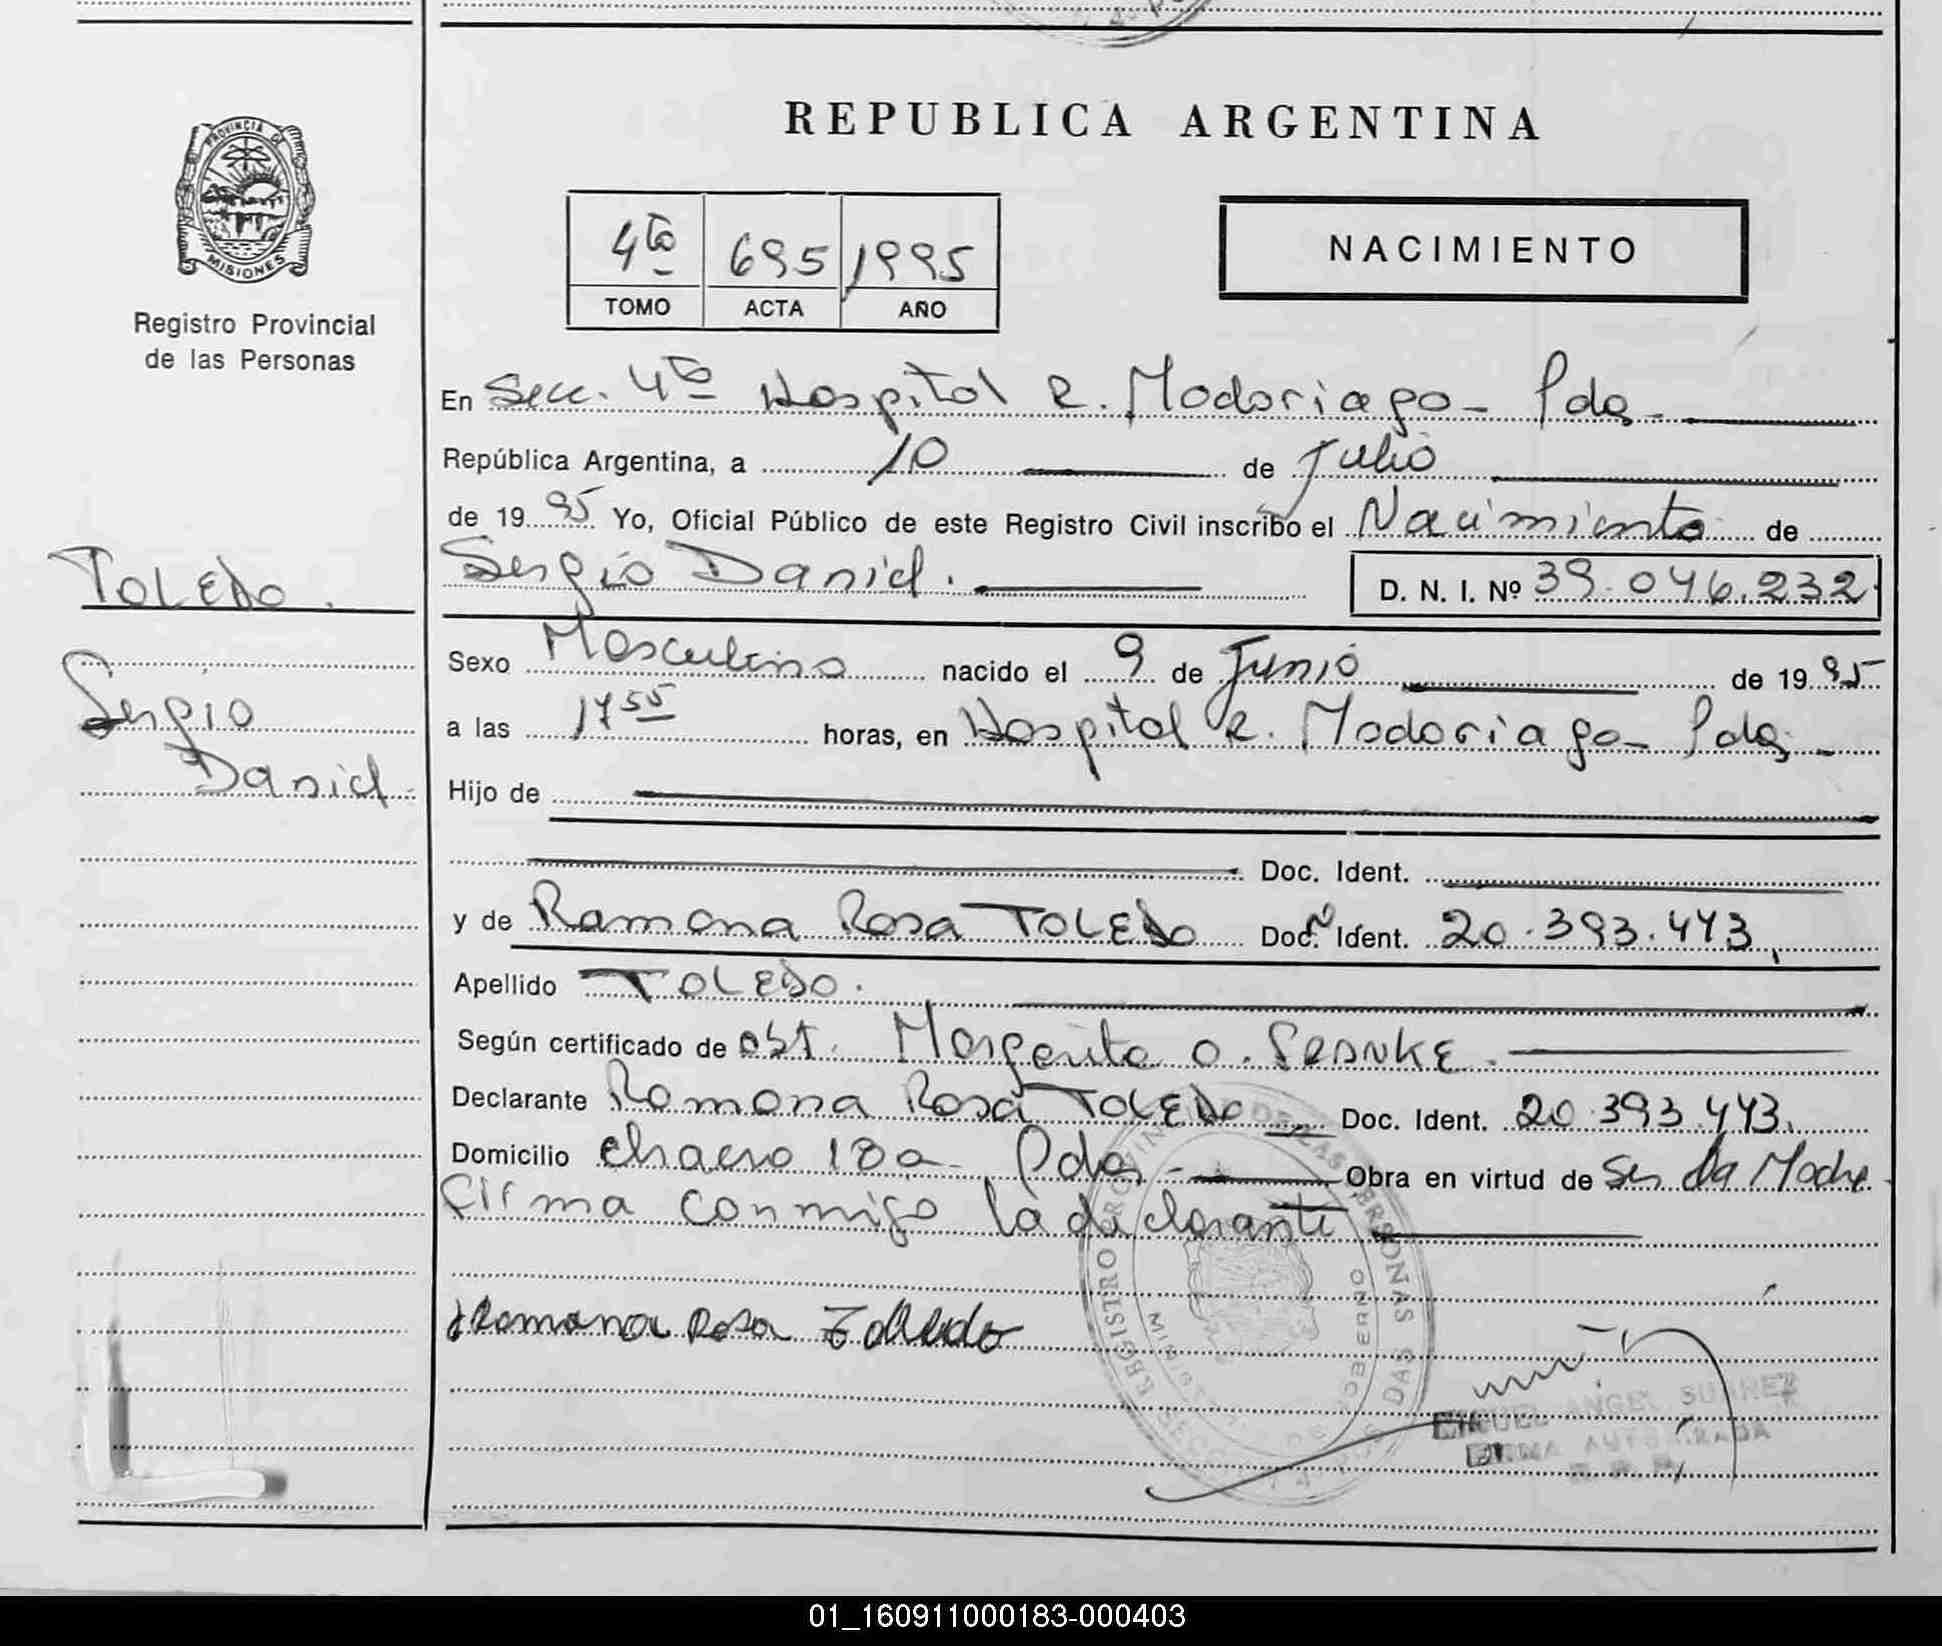 REPUBLICA ARGENTINA
PROVINCIA DE
MISIONES
Registro Provincial
de las Personas
4to 695 1995
TOMO ACTA AÑO
NACIMIENTO
En Secc. 4to Hospital R. Madariaga - Pdas -
República Argentina, a 10 de Julio
de 1995 Yo, Oficial Público de este Registro Civil inscribo el Nacimiento de
TOLEDO.
Sergio Daniel. D. N. I. Nº 39.046.232
Sexo Masculino nacido el 9 de Junio de 1995
Sergio
a las 1755 horas, en Hospital R. Madariaga - Pdas -
Daniel.
Hijo de
Doc. Ident.
y de Ramona Rosa TOLEDO Doc. Ident. 20.393.443,
Apellido TOLEDO.
Según certificado de obst. Margarita O.
Declarante Ramona Rosa TOLEDO Doc. Ident. 20.393.443.
Domicilio chacra 180 - Pdas - Obra en virtud de Ser la Madre
firma conmigo la declarante
Ramona Rosa Toledo
REGISTRO PROVINCIAL DE LAS PERSONAS
GOBIERNO
MIGUEL ANGEL SUAREZ
FIRMA AUTORIZADA
01_160911000183-000403